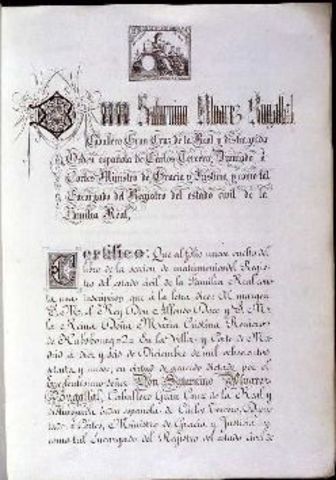 Don Saturnino Alvarez Bugallal,
Caballero Gran Cruz de la Real y distinguida
Orden española de Carlos Tercero, Diputado á
Cortes, Ministro de Gracia y Justicia, y como tal
Encargado del Registro del estado civil de la
Familia Real,
Certifico: Que al folio nueve vuelto del
libro de la seccion de matrimonios del Regis-
tro del estado civil de la Familia Real cons-
ta una inscripcion que á la letra dice: Al margen
S. M. el Rey Don Alfonso Doce y S. M.
la Reina Doña Maria Cristina
En la Villa y Corte de Ma-
drid á diez y seis de Diciembre de mil ochocientos
setenta y nueve, en virtud de acuerdo dictado por el
Excelentísimo señor Don Saturnino Alvarez
Bugallal, Caballero Gran Cruz de la Real y
distinguida Orden española de Carlos Tercero, Dipu-
tado á Cortes, Ministro de Gracia y Justicia y
como tal Encargado del Registro del estado civil de